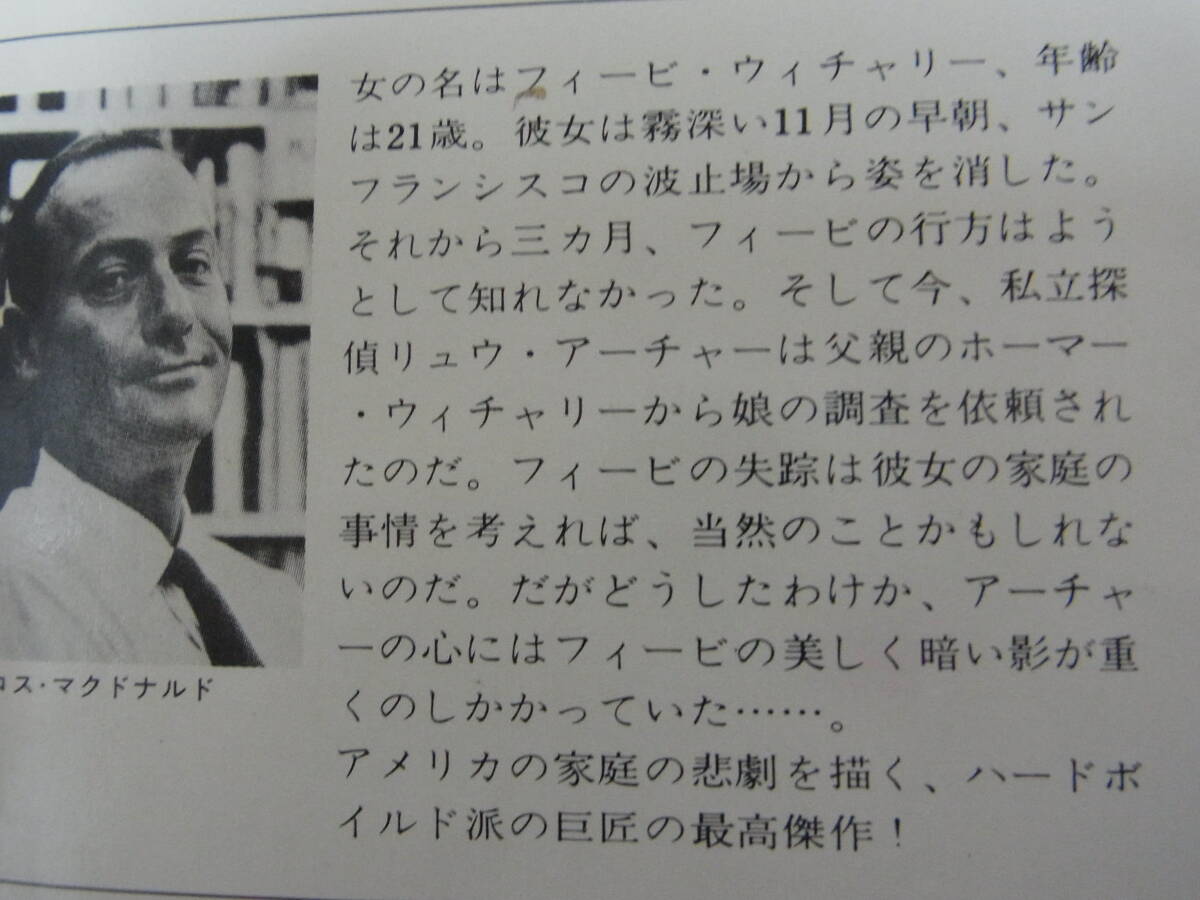 女の名はフィービ・ウィチャリー、年齢
は21歳。彼女は霧深い11月の早朝、サン
フランシスコの波止場から姿を消した。
それから三カ月、フィービの行方はよう
として知れなかった。そして今、私立探
偵リュウ・アーチャーは父親のホーマー
・ウィチャリーから娘の調査を依頼され
たのだ。フィービの失踪は彼女の家庭の
事情を考えれば、当然のことかもしれな
いのだ。だがどうしたわけか、アーチャ
ーの心にはフィービの美しく暗い影が重
くのしかかっていた……。
アメリカの家庭の悲劇を描く、ハードボ
イルド派の巨匠の最高傑作！
ロス・マクドナルド